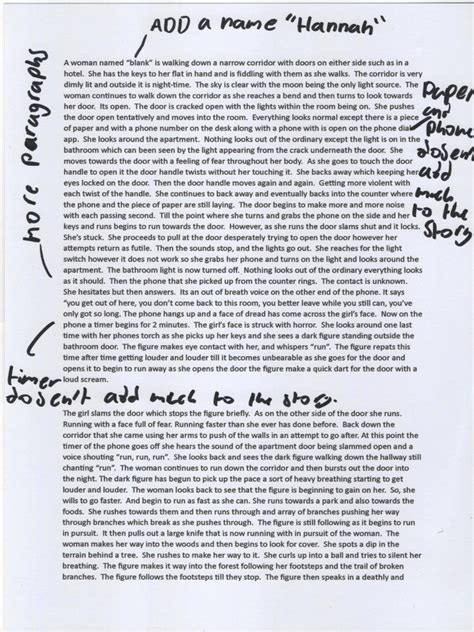 ADD a name "Hannah"
A woman named "blank" is walking down a narrow corridor with doors on either side such as in a
hotel. She has the keys to her flat in hand and is fiddling with them as she walks. The corridor is very
dimly lit and outside it is night-time. The sky is clear with the moon being the only light source. The
woman continues to walk down the corridor as she reaches a bend and then turns to look towards
her door. Its open. The door is cracked open with the lights within the room being on. She pushes
the door open tentatively and moves into the room. Everything looks normal except there is a piece
of paper and with a phone number on the desk along with a phone with is open on the phone dial
app. She looks around the apartment. Nothing looks out of the ordinary except the light is on in the
bathroom which can been seen by the light appearing from the crack underneath the door. She
moves towards the door with a feeling of fear throughout her body. As she goes to touch the door
handle to open it the door handle twists without her touching it. She backs away which keeping her
eyes locked on the door. Then the door handle moves again and again. Getting more violent with
each twist of the handle. She continues to back away and eventually backs into the counter where
the phone and the piece of paper are still laying. The door begins to make more and more noise
with each passing second. Till the point where she turns and grabs the phone on the side and her
keys and runs begins to run towards the door. However, as she runs the door slams shut and it locks.
She's stuck. She proceeds to pull at the door desperately trying to open the door however her
attempts return as futile. Then the sounds stop, and the lights go out. She reaches for the light
switch however it does not work so she grabs her phone and turns on the light and looks around the
apartment. The bathroom light is now turned off. Nothing looks out of the ordinary everything looks
as it should. Then the phone that she picked up from the counter rings. The contact is unknown.
She hesitates but then answers. Its an out of breath voice on the other end of the phone. It says
"you get out of here, you don't come back to this room, you better leave while you still can, you've
only got so long. The phone hangs up and a face of dread has come across the girl's face. Now on the
phone a timer begins for 2 minutes. The girl's face is struck with horror. She looks around one last
time with her phones torch as she picks up her keys and she sees a dark figure standing outside the
bathroom door. The figure makes eye contact with her, and whispers "run". The figure repats this
time after time getting louder and louder till it becomes unbearable as she goes for the door and
opens it to begin to run away as she opens the door the figure make a quick dart for the door with a
loud scream.
more paragraphs
Paper
and
phone
doesn't
add
much
to the
story
timer
doesn't add much to the stop.
The girl slams the door which stops the figure briefly. As on the other side of the door she runs.
Running with a face full of fear. Running faster than she ever has done before. Back down the
corridor that she came using her arms to push of the walls in an attempt to go after. At this point the
timer of the phone goes off she hears the sound of the apartment door being slammed open and a
voice shouting "run, run, run". She looks back and sees the dark figure walking down the hallway still
chanting "run". The woman continues to run down the corridor and then bursts out the door into
the night. The dark figure has begun to pick up the pace a sort of heavy breathing starting to get
louder and louder. The woman looks back to see that the figure is beginning to gain on her. So, she
wills to go faster. And begin to run as fast as she can. She runs towards a park and also towards the
foods. She rushes towards them and then runs through and array of branches pushing her way
through branches which break as she pushes through. The figure is still following as it begins to run
in pursuit. It then pulls out a large knife that is now running with in pursuit of the woman. The
woman makes her way into the woods and then begins to look for cover. She spots a dip in the
terrain behind a tree. She rushes to make her way to it. She curls up into a ball and tries to silent her
breathing. The figure makes it way into the forest following her footsteps and the trail of broken
branches. The figure follows the footsteps till they stop. The figure then speaks in a deathly and